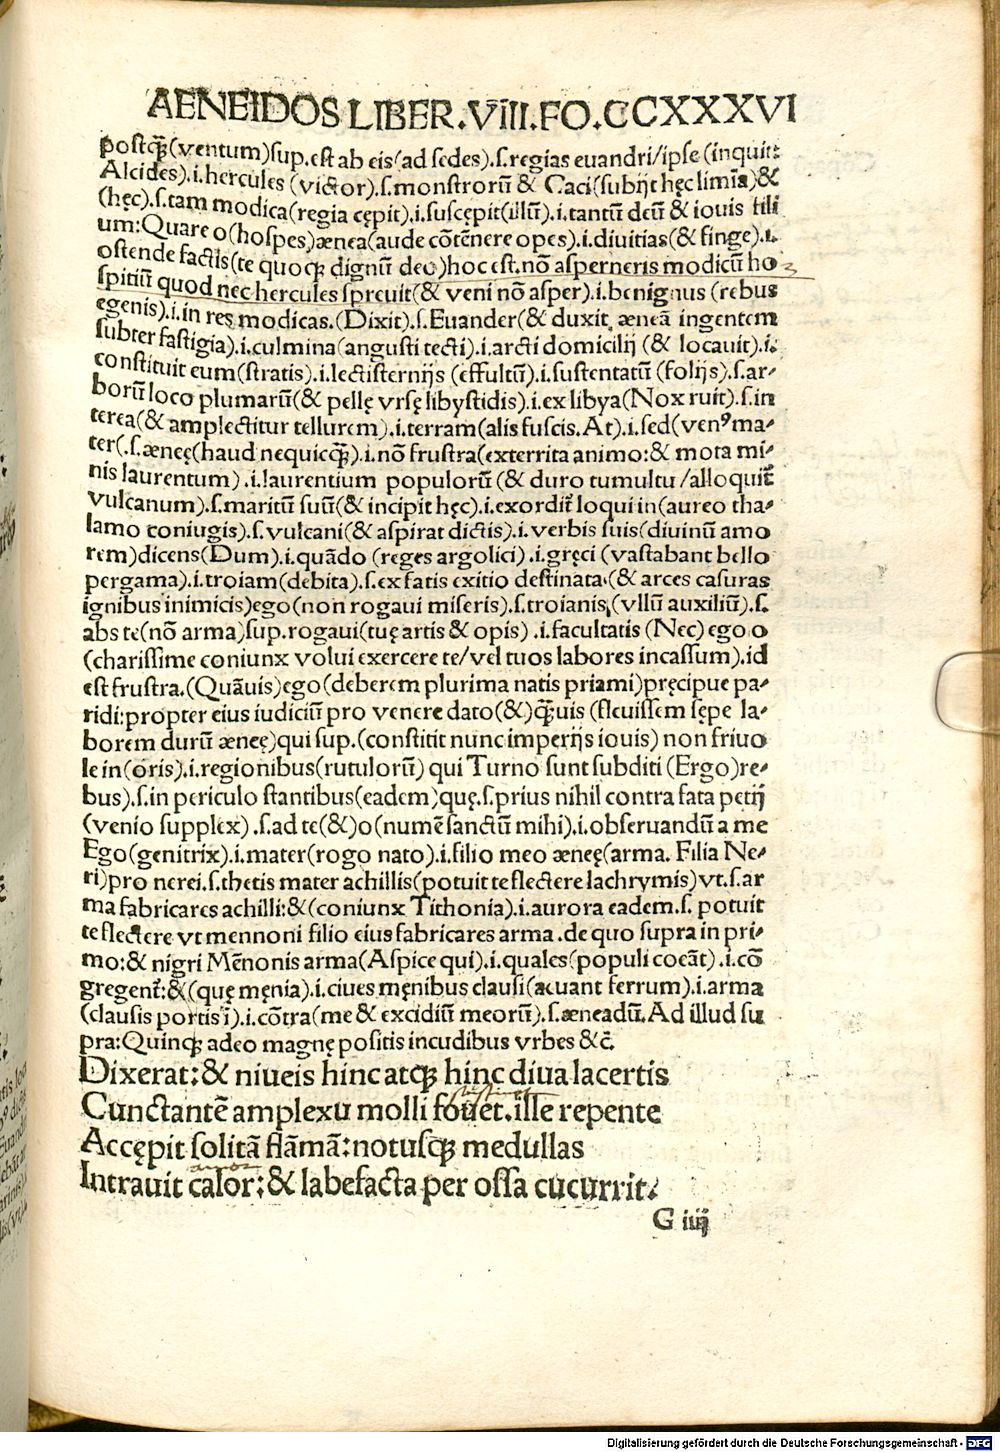 AENEIDOS LIBER.VIII.FO.CCXXXVI
postꝙ̃(ventum)sup.est ab eis(ad sedes).s.regias euandri/ipse(inquit:
Alcides).i.hercules (victor).s.monstrorū & Caci(subijt hęc limīa)&
(hęc).s.tam modica(regia cępit).i.suscępit(illū).i.tantū deū & iouis fili
um:Quare o(hospes)ænea(aude cōtēnere opes).i.diuitias(& finge).i.
ostende factis(te quoqꝫ dignū deo)hoc est.nō asperneris modicū ho
spitiū quod nec hercules spreuit(& veni nō asper).i.benignus (rebus
egenis).i.in res modicas.(Dixit).s.Euander(& duxit æneā ingentem
subter fastigia).i.culmina(angusti tecti).i.arcti domicilij (& locauit).i.
constituit eum(stratis).i.lectisternijs (effultū).i.sustentatū (folijs).s.ar-
borū loco plumarū(& pellę vrsę libystidis).i.ex libya(Nox ruit).s.in
terea(& amplectitur tellurem).i.terram(alis fuscis.At).i.sed(venꝰ ma-
ter(.s.æneę(haud nequicꝙ̃).i.nō frustra(exterrita animo:& mota mi-
nis laurentum).i.laurentium populorū (& duro tumultu/alloquit̃
vulcanum).s.maritū suū(& incipit hęc).i.exordit̃ loqui in(aureo tha-
lamo coniugis).s.vulcani(& aspirat dictis).i.verbis suis(diuinū amo
rem)dicens(Dum).i.quādo (reges argolici).i.gręci (vastabant bello
pergama).i.troiam(debita).s.ex fatis exitio destinata(& arces casuras
ignibus inimicis)ego(non rogaui miseris).s.troianis(vllū auxiliū).s.
abs te(nō arma)sup.rogaui(tuę artis & opis).i.facultatis (Nec)ego o
(charissime coniunx volui exercere te/vel tuos labores incassum).id
est frustra.(Quāuis)ego(deberem plurima natis priami)pręcipue pa-
ridi:propter eius iudiciū pro venere dato(&)ꝙ̃uis (fleuissem sępe la-
borem durū æneę)qui sup.(constitit nunc imperijs iouis) non friuo
le in(oris).i.regionibus(rutulorū) qui Turno sunt subditi (Ergo)re-
bus).s.in periculo stantibus(eadem)quę.s.prius nihil contra fata petij
(venio supplex).s.ad te(&)o(numē sanctū mihi).i.obseruandū a me
Ego(genitrix).i.mater(rogo nato).i.filio meo æneę(arma. Filia Ne-
ri)pro nerei.s.thetis mater achillis(potuit te flectere lachrymis)vt.s.ar
ma fabricares achilli:&(coniunx Tithonia).i.aurora eadem.s. potuit
te flectere vt mennoni filio eius fabricares arma.de quo supra in pri-
mo:& nigri Mēnonis arma(Aspice qui).i.quales(populi coeāt).i.cō
gregent̃:&(quę męnia).i.ciues męnibus clausi(acuant ferrum).i.arma
(clausis portis ī).i.cōtra(me & excidiū meorū).s.æneadū.Ad illud su
pra:Quinqꝫ adeo magnę positis incudibus vrbes &c̄.
Dixerat:& niueis hinc atqꝫ hinc diua lacertis
Cunctantē amplexu molli fouet.ille repente
Accępit solitā flāmā:notusqꝫ medullas
amor
Intrauit calor:& labefacta per ossa cucurrit.
G iiij
Digitalisierung gefördert durch die Deutsche Forschungsgemeinschaft - DFG